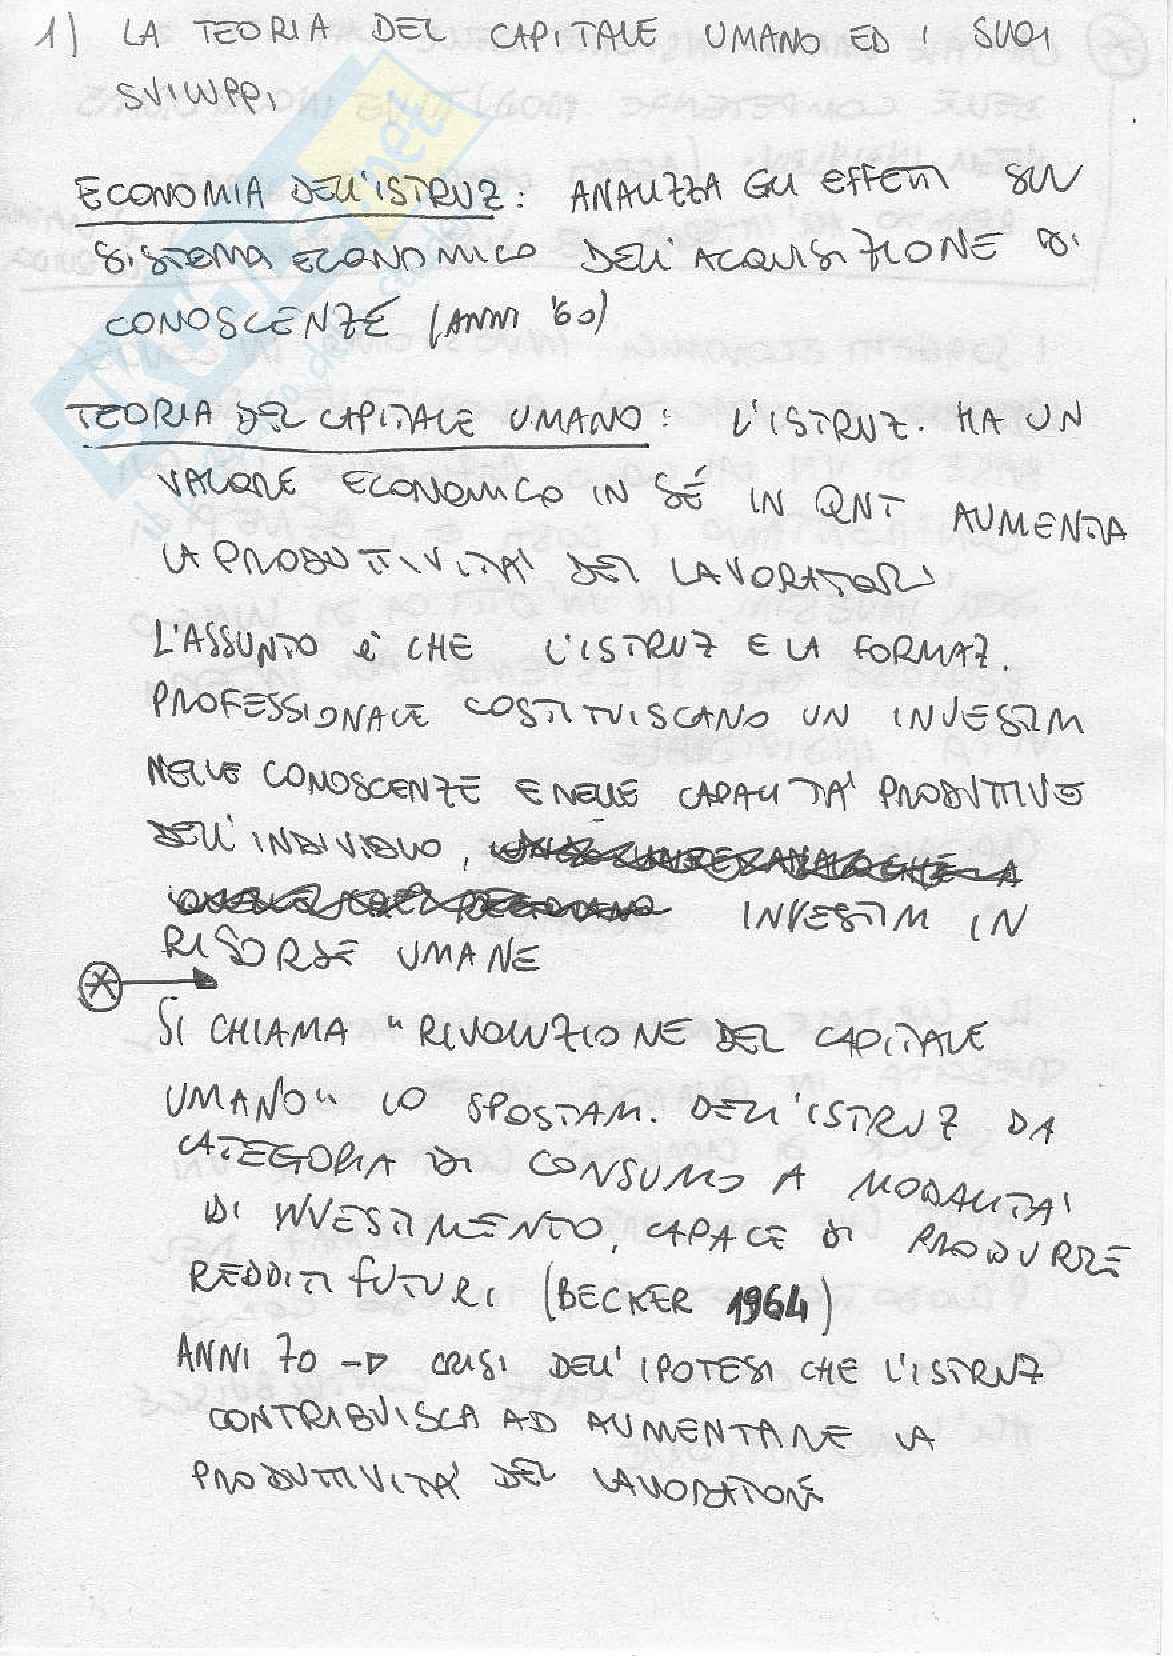 1) LA TEORIA DEL CAPITALE UMANO ED I SUOI
SVILUPPI
ECONOMIA DELL'ISTRUZ: ANALIZZA GLI EFFETTI SUL
SISTEMA ECONOMICO DELL'ACQUISIZIONE DI
CONOSCENZE (ANNI '60)
TEORIA DEL CAPITALE UMANO: L'ISTRUZ. HA UN
VALORE ECONOMICO IN SÉ IN QNT AUMENTA
LA PRODUTTIVITA' DEI LAVORATORI
L'ASSUNTO è CHE L'ISTRUZ E LA FORMAZ.
PROFESSIONALE COSTITUISCANO UN INVESTIM
NELLE CONOSCENZE E NELLE CAPACITA' PRODUTTIVE
DELL'INDIVIDUO,
INVESTIM IN
RISORSE UMANE
SI CHIAMA "RIVOLUZIONE DEL CAPITALE
UMANO" LO SPOSTAM. DELL'ISTRUZ DA
CATEGORIA DI CONSUMO A MODALITA'
DI INVESTIMENTO, CAPACE DI PRODURRE
REDDITI FUTURI (BECKER 1964)
ANNI 70 -> CRISI DELL'IPOTESI CHE L'ISTRUZ
CONTRIBUISCA AD AUMENTARE LA
PRODUTTIVITA' DEL LAVORATORE